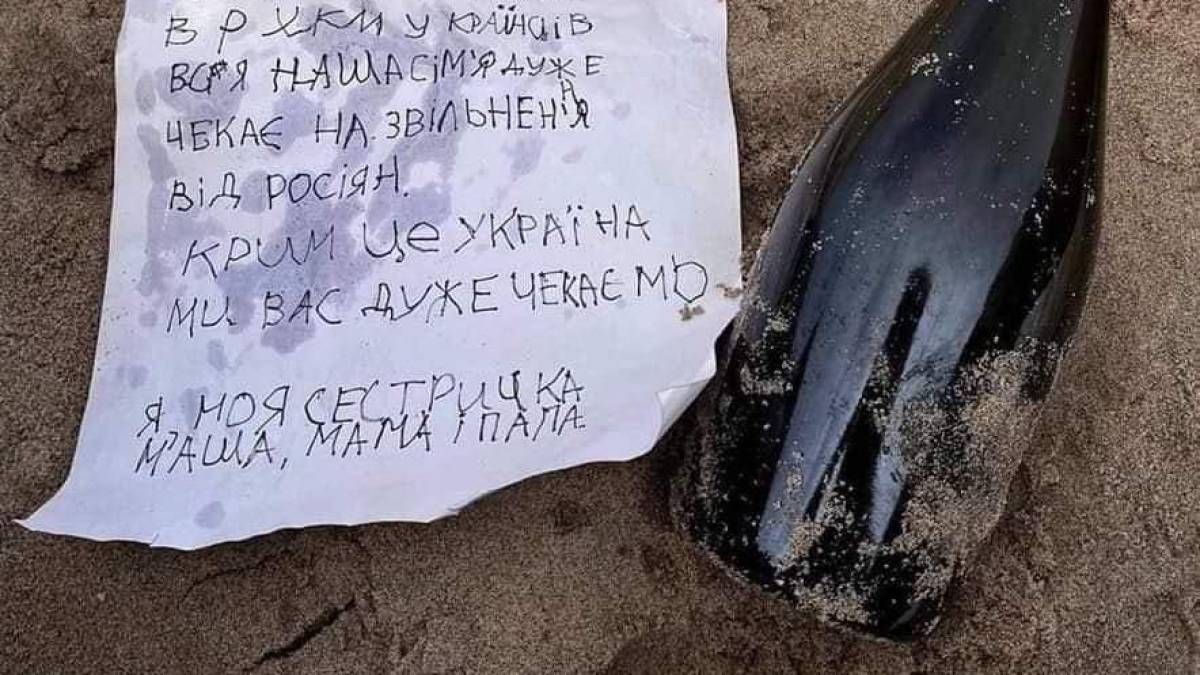 В РУКИ УКРАЇНЦІВ
ВСЯ НАША СІМ'Я ДУЖЕ
ЧЕКАЄ НА ЗВІЛЬНЕННЯ
ВІД РОСІЯН.
КРИМ ЦЕ УКРАЇНА
МИ ВАС ДУЖЕ ЧЕКАЄМО
Я МОЯ СЕСТРИЧКА
МАША, МАМА І ПАПА